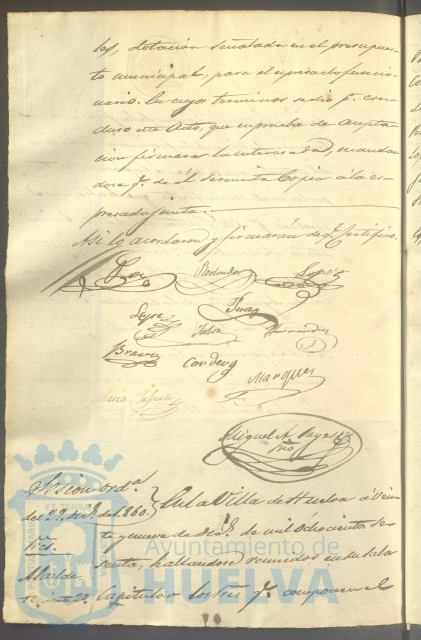 les, dotacion señalada en el presupues-
to municipal, para el espresado funcio-
nario. En cuyos terminos se dio p.r con-
cluso este Acto, que en prueba de acepta-
cion firmaran la interesada, mandan-
dose q.e de él se remita Copia a la es-
presada Junta.
Asi lo acordaron y firmarán de q.e Certifico.
Redondo Lopez
Perez
Hernandez
Bravo Cordero
Marquez
Miguel A.
Srio
Sesion ord.a
del 29 Dic.e del 860.
En la Villa de Huelva á Vein-
te y nueve de Dic.e de mil Ochocientos se-
senta, hallandose reunidos en su Sala
Alcalde
Capitular los Sres q.e componen el
Ayuntamiento de
HUELVA